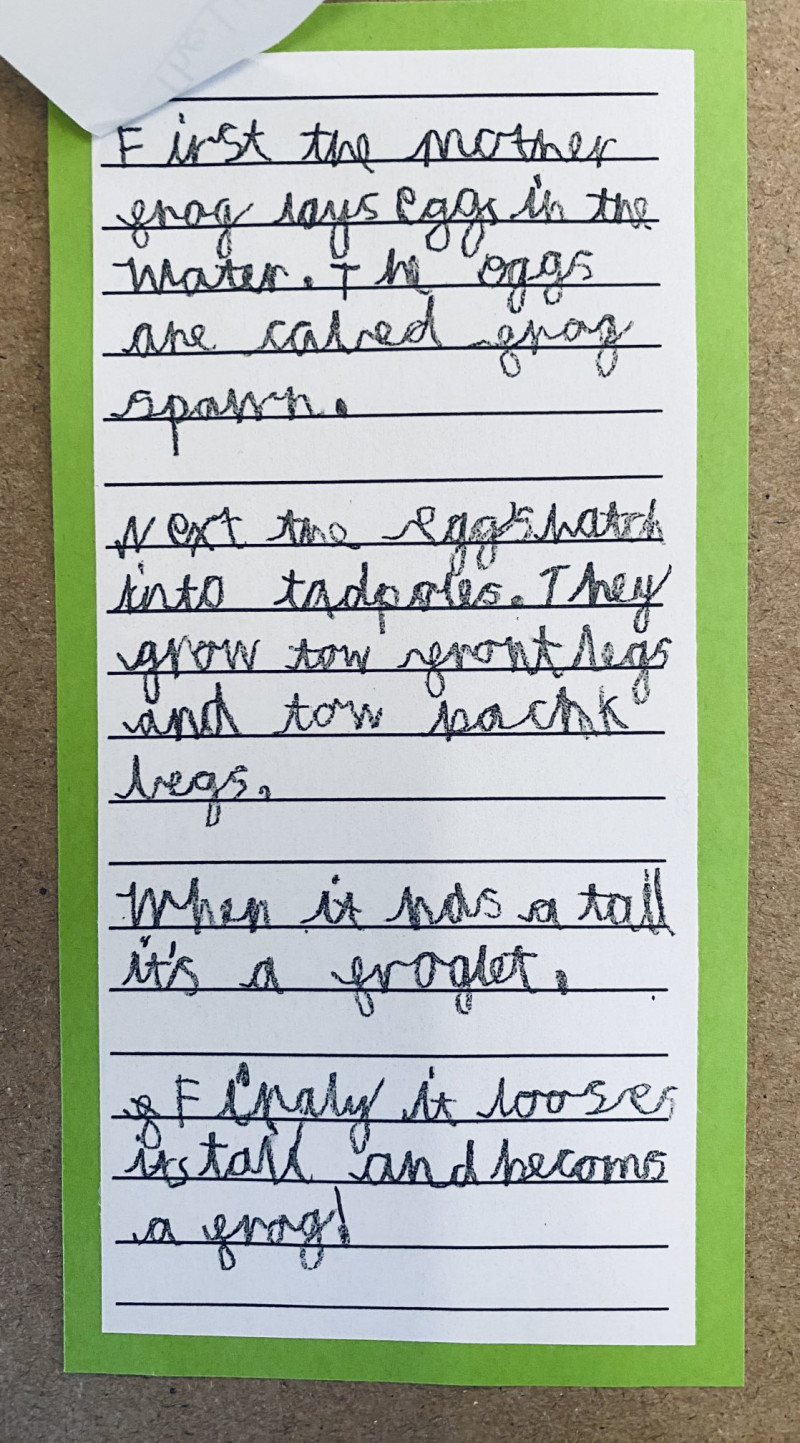 First the mother
frog lays eggs in the
water. The eggs
are caled frog
spawn.
Next the eggs hatch
into tadpoles. They
grow tow front legs
and tow bachk
legs.
When it has a tail
it's a froglet.
Finaly it looses
its tail and becoms
a frog!